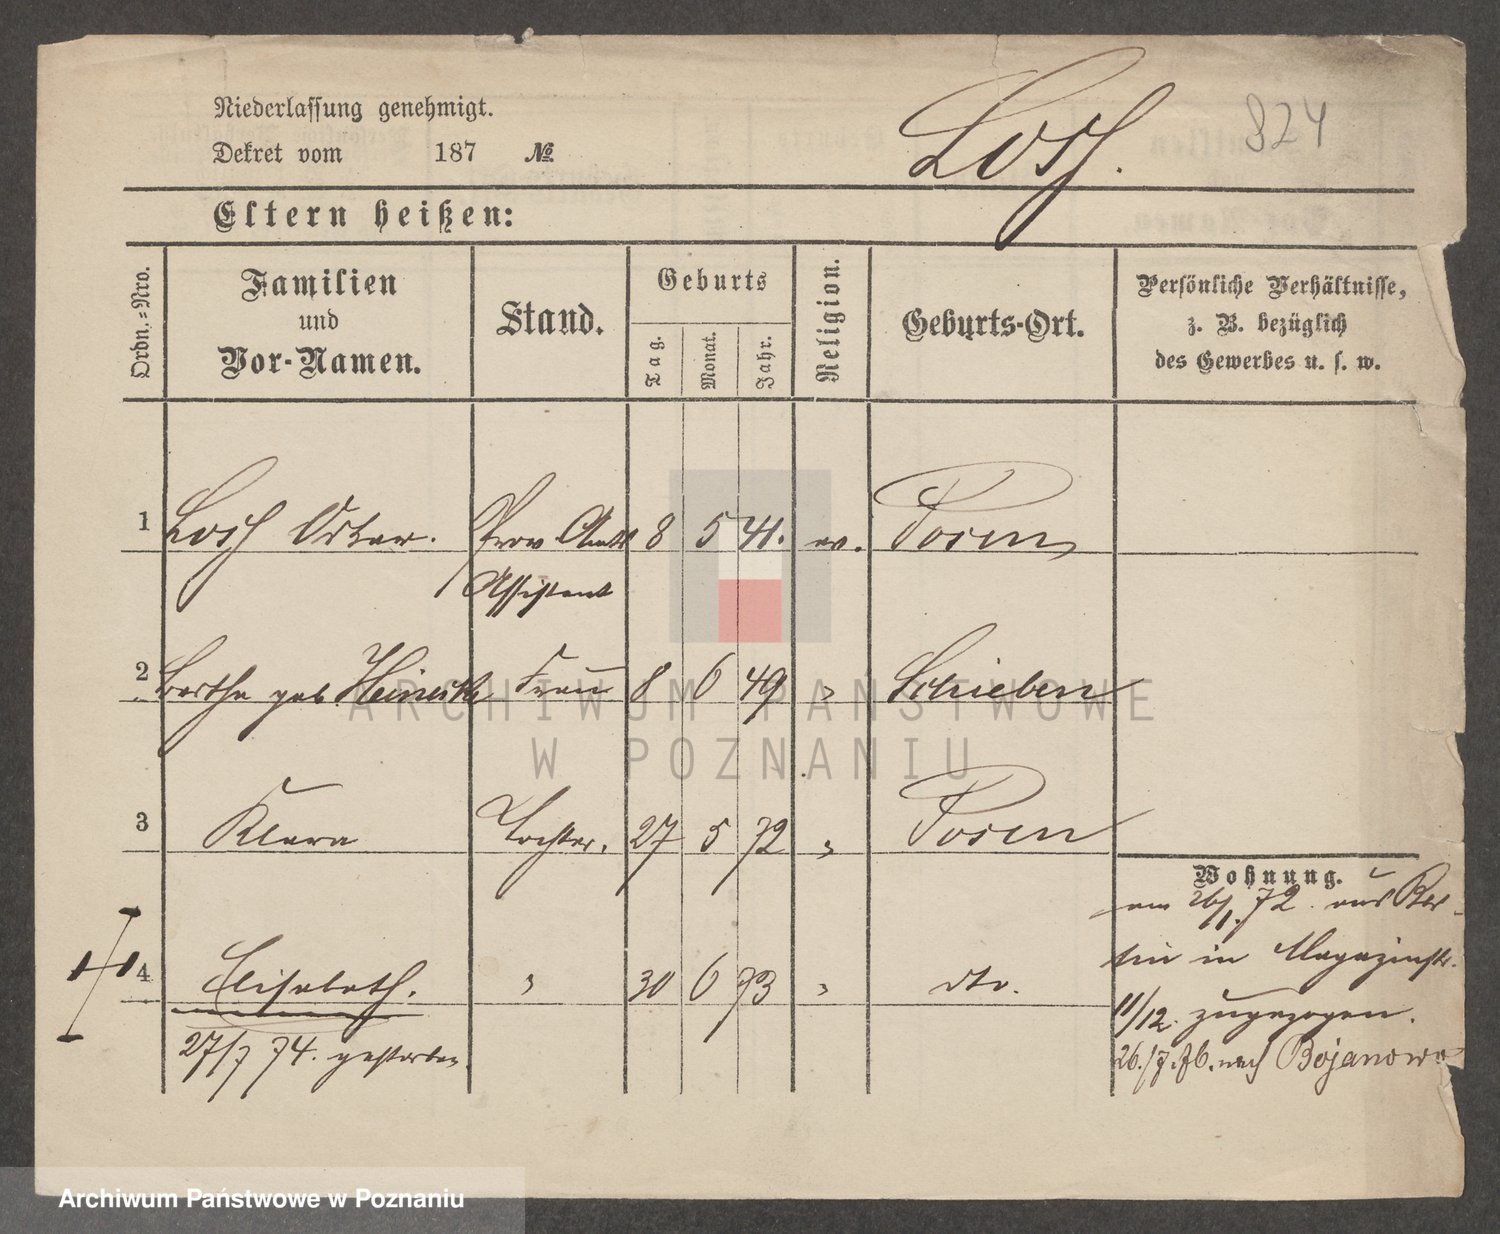 Niederlassung genehmigt.
Dekret vom 187 №
Losch.
824
Eltern heißen:
Ordn.=Nro.
Familien
und
Vor-Namen.
Stand.
Geburts
Tag.
Monat.
Jahr.
Religion.
Geburts-Ort.
Persönliche Verhältnisse,
z. B. bezüglich
des Gewerbes u. s. w.
1 Losch Oskar. Prov Amts 8 5 41. ev. Posen
Assistent
2 Bertha geb Frau 8 6 49 " Schieben
3 Klara Tochter. 27 5 72 " Posen
4 Elisabeth. " 30 6 73 " dto.
27/7 74. gestorben
Wohnung.
am 26/1. 72. aus
in Magazinstr.
11/12. zugezogen.
26./7. 76. nach Bojanowo
ARCHIWUM PAŃSTWOWE
W POZNANIU
Archiwum Państwowe w Poznaniu